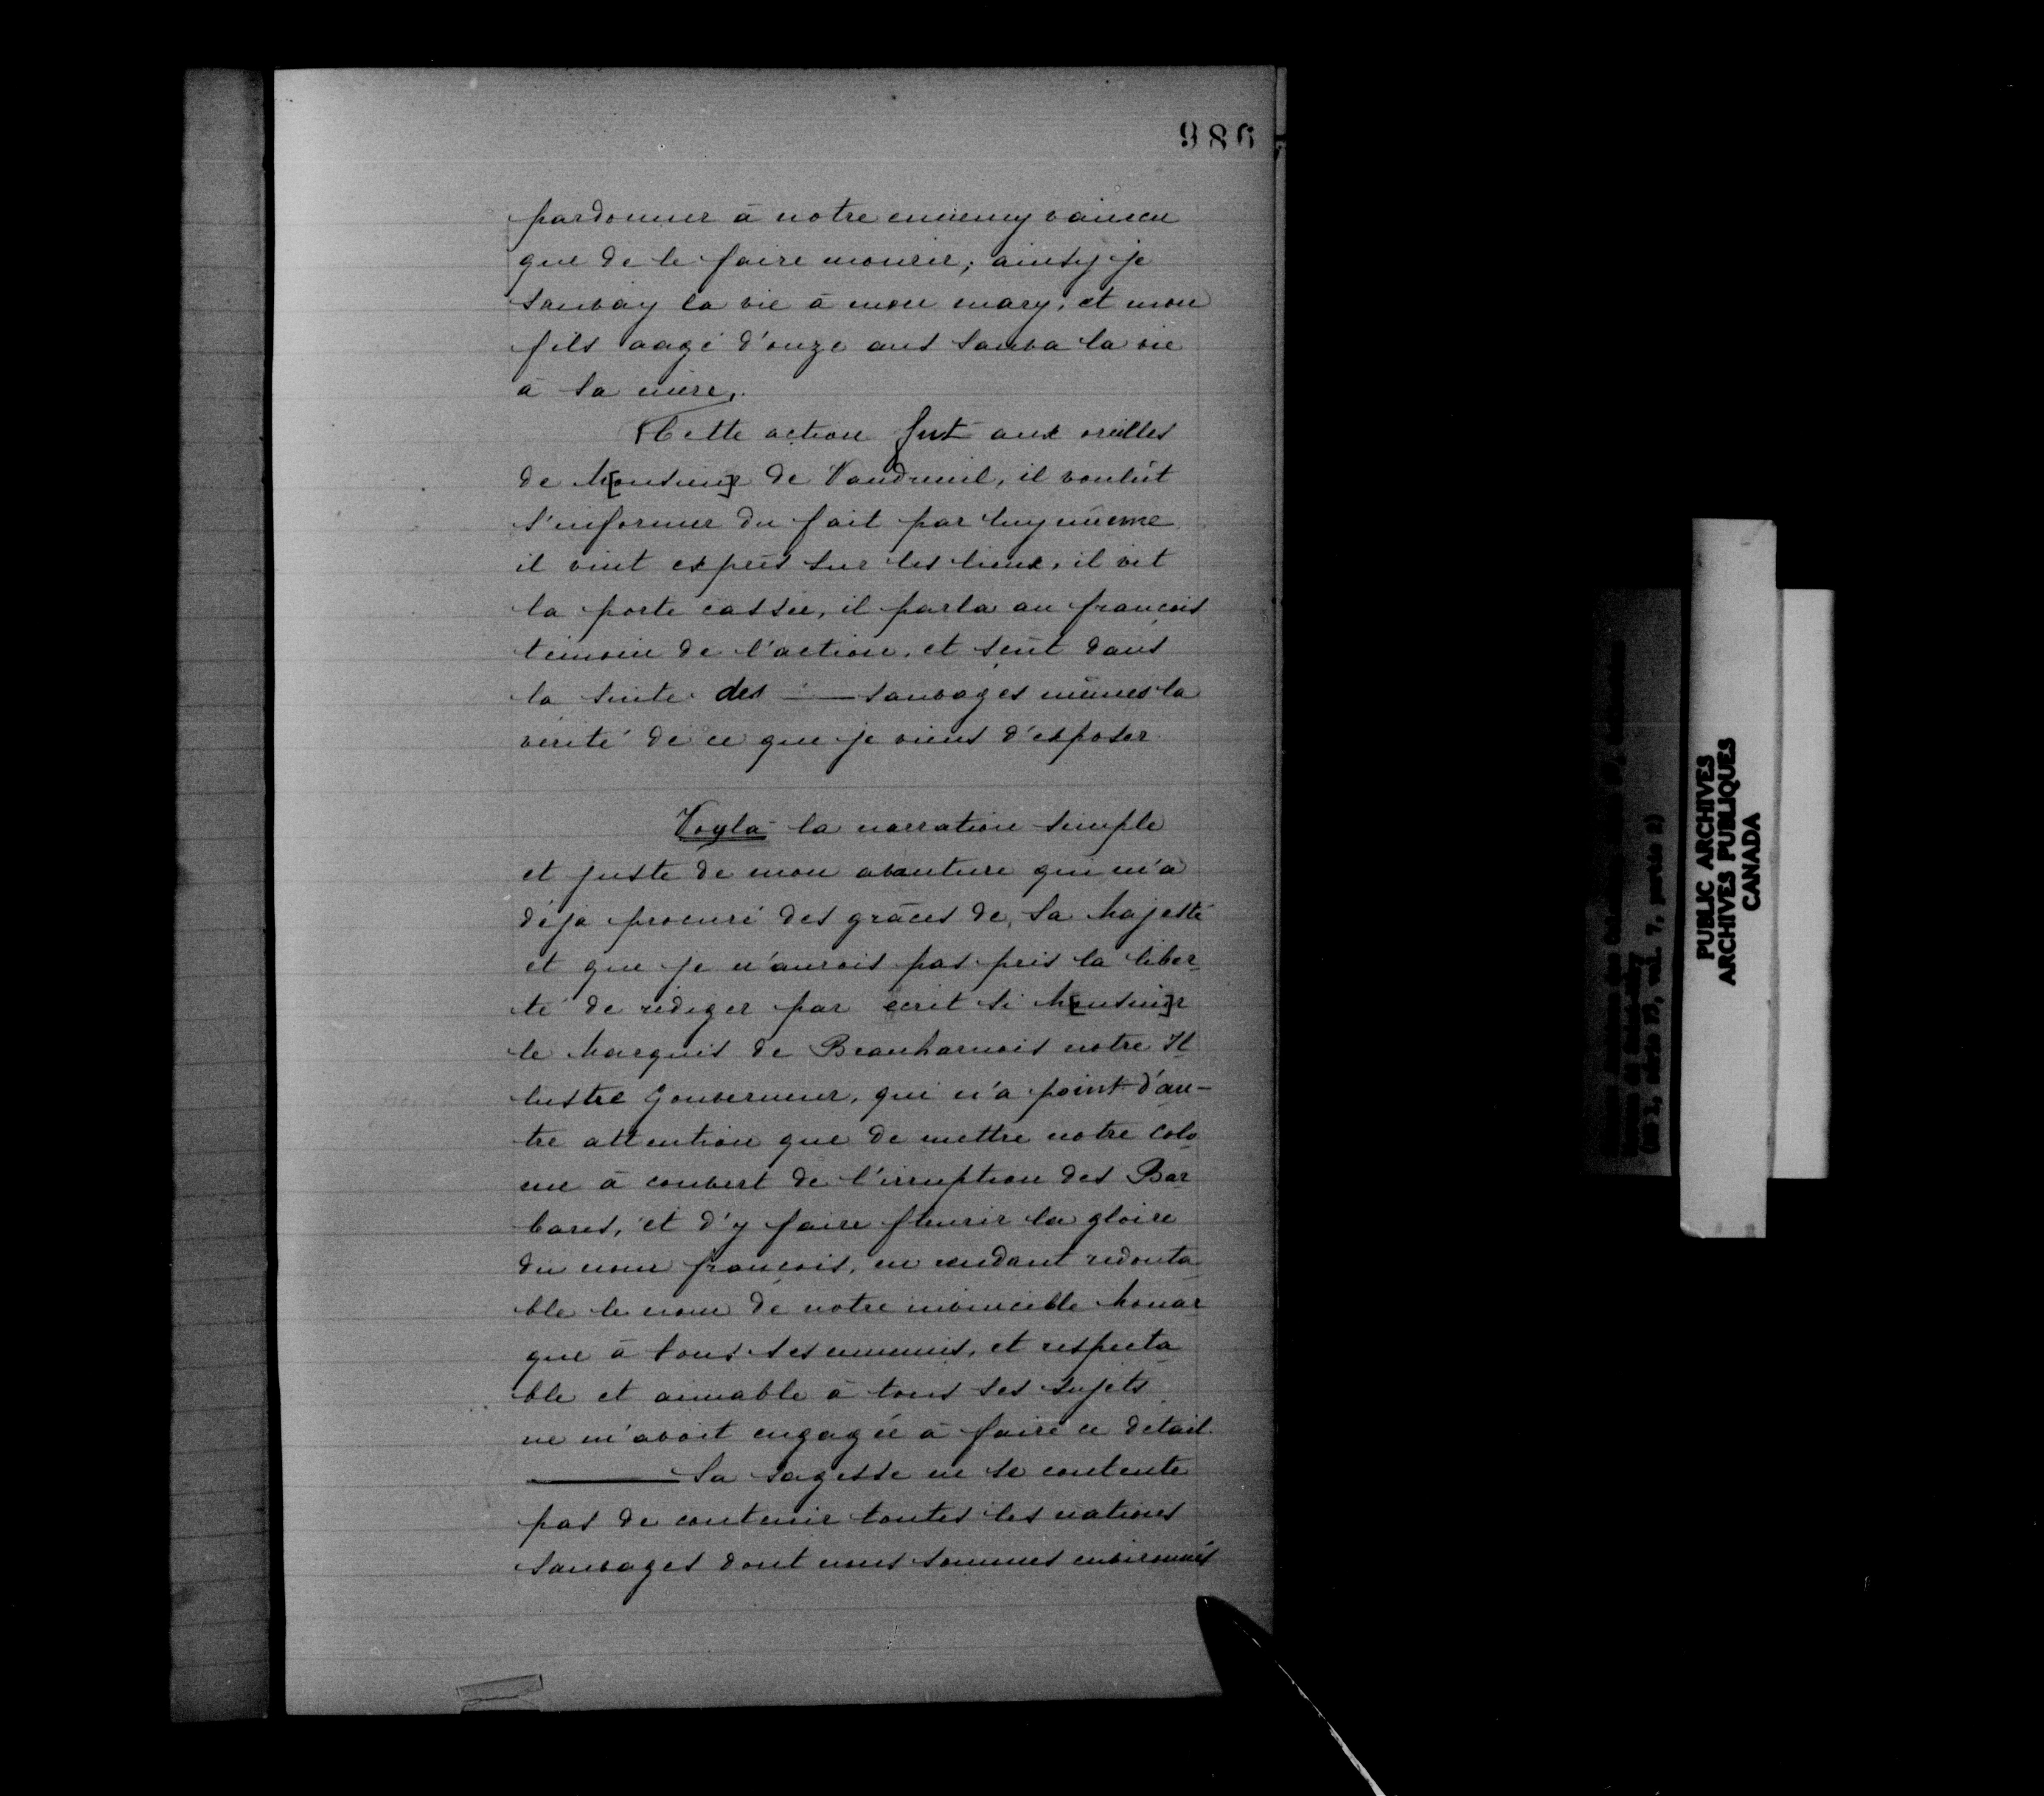 986
pardonner à notre ennemy vaincu
que de le faire mourir; ainsy je
sauvay la vie à mon mary, et mon
fils aagé d'onze ans sauva la vie
à sa mère.
Cette action fut aux oreilles
de M[onsieu]r de Vaudreuil, il voulut
s'informer du fait par luy mesme
il vint exprès sur les lieux, il vit
la porte cassée, il parla au françois
témoin de l'action, et sçut dans
la suite des — sauvages mêmes la
vérité de ce que je viens d'exposer.
Voyla la narration simple
et juste de mon avanture qui m'a
déja procuré des grâces de Sa Majesté
et que je n'aurois pas pris la liber-
té de rédiger par écrit si M[onsieu]r
le Marquis de Beauharnois notre Il
lustre Gouverneur, qui n'a point d'au-
tre attention que de mettre notre colo
nie à couvert de l'irruption des Bar
bares, et d'y faire fleurir la gloire
du nom françois, en rendant redouta
ble le nom de notre invincible Monar
que à tous ses ennemis, et respecta
ble et aimable à tous ses sujets
ne m'avoit engagée à faire ce détail.
— Sa sagesse ne se contente
pas de contenir toutes les nations
sauvages dont nous sommes environnés
PUBLIC ARCHIVES
ARCHIVES PUBLIQUES
CANADA
(MG 1, série F3, vol. 7, partie 2)